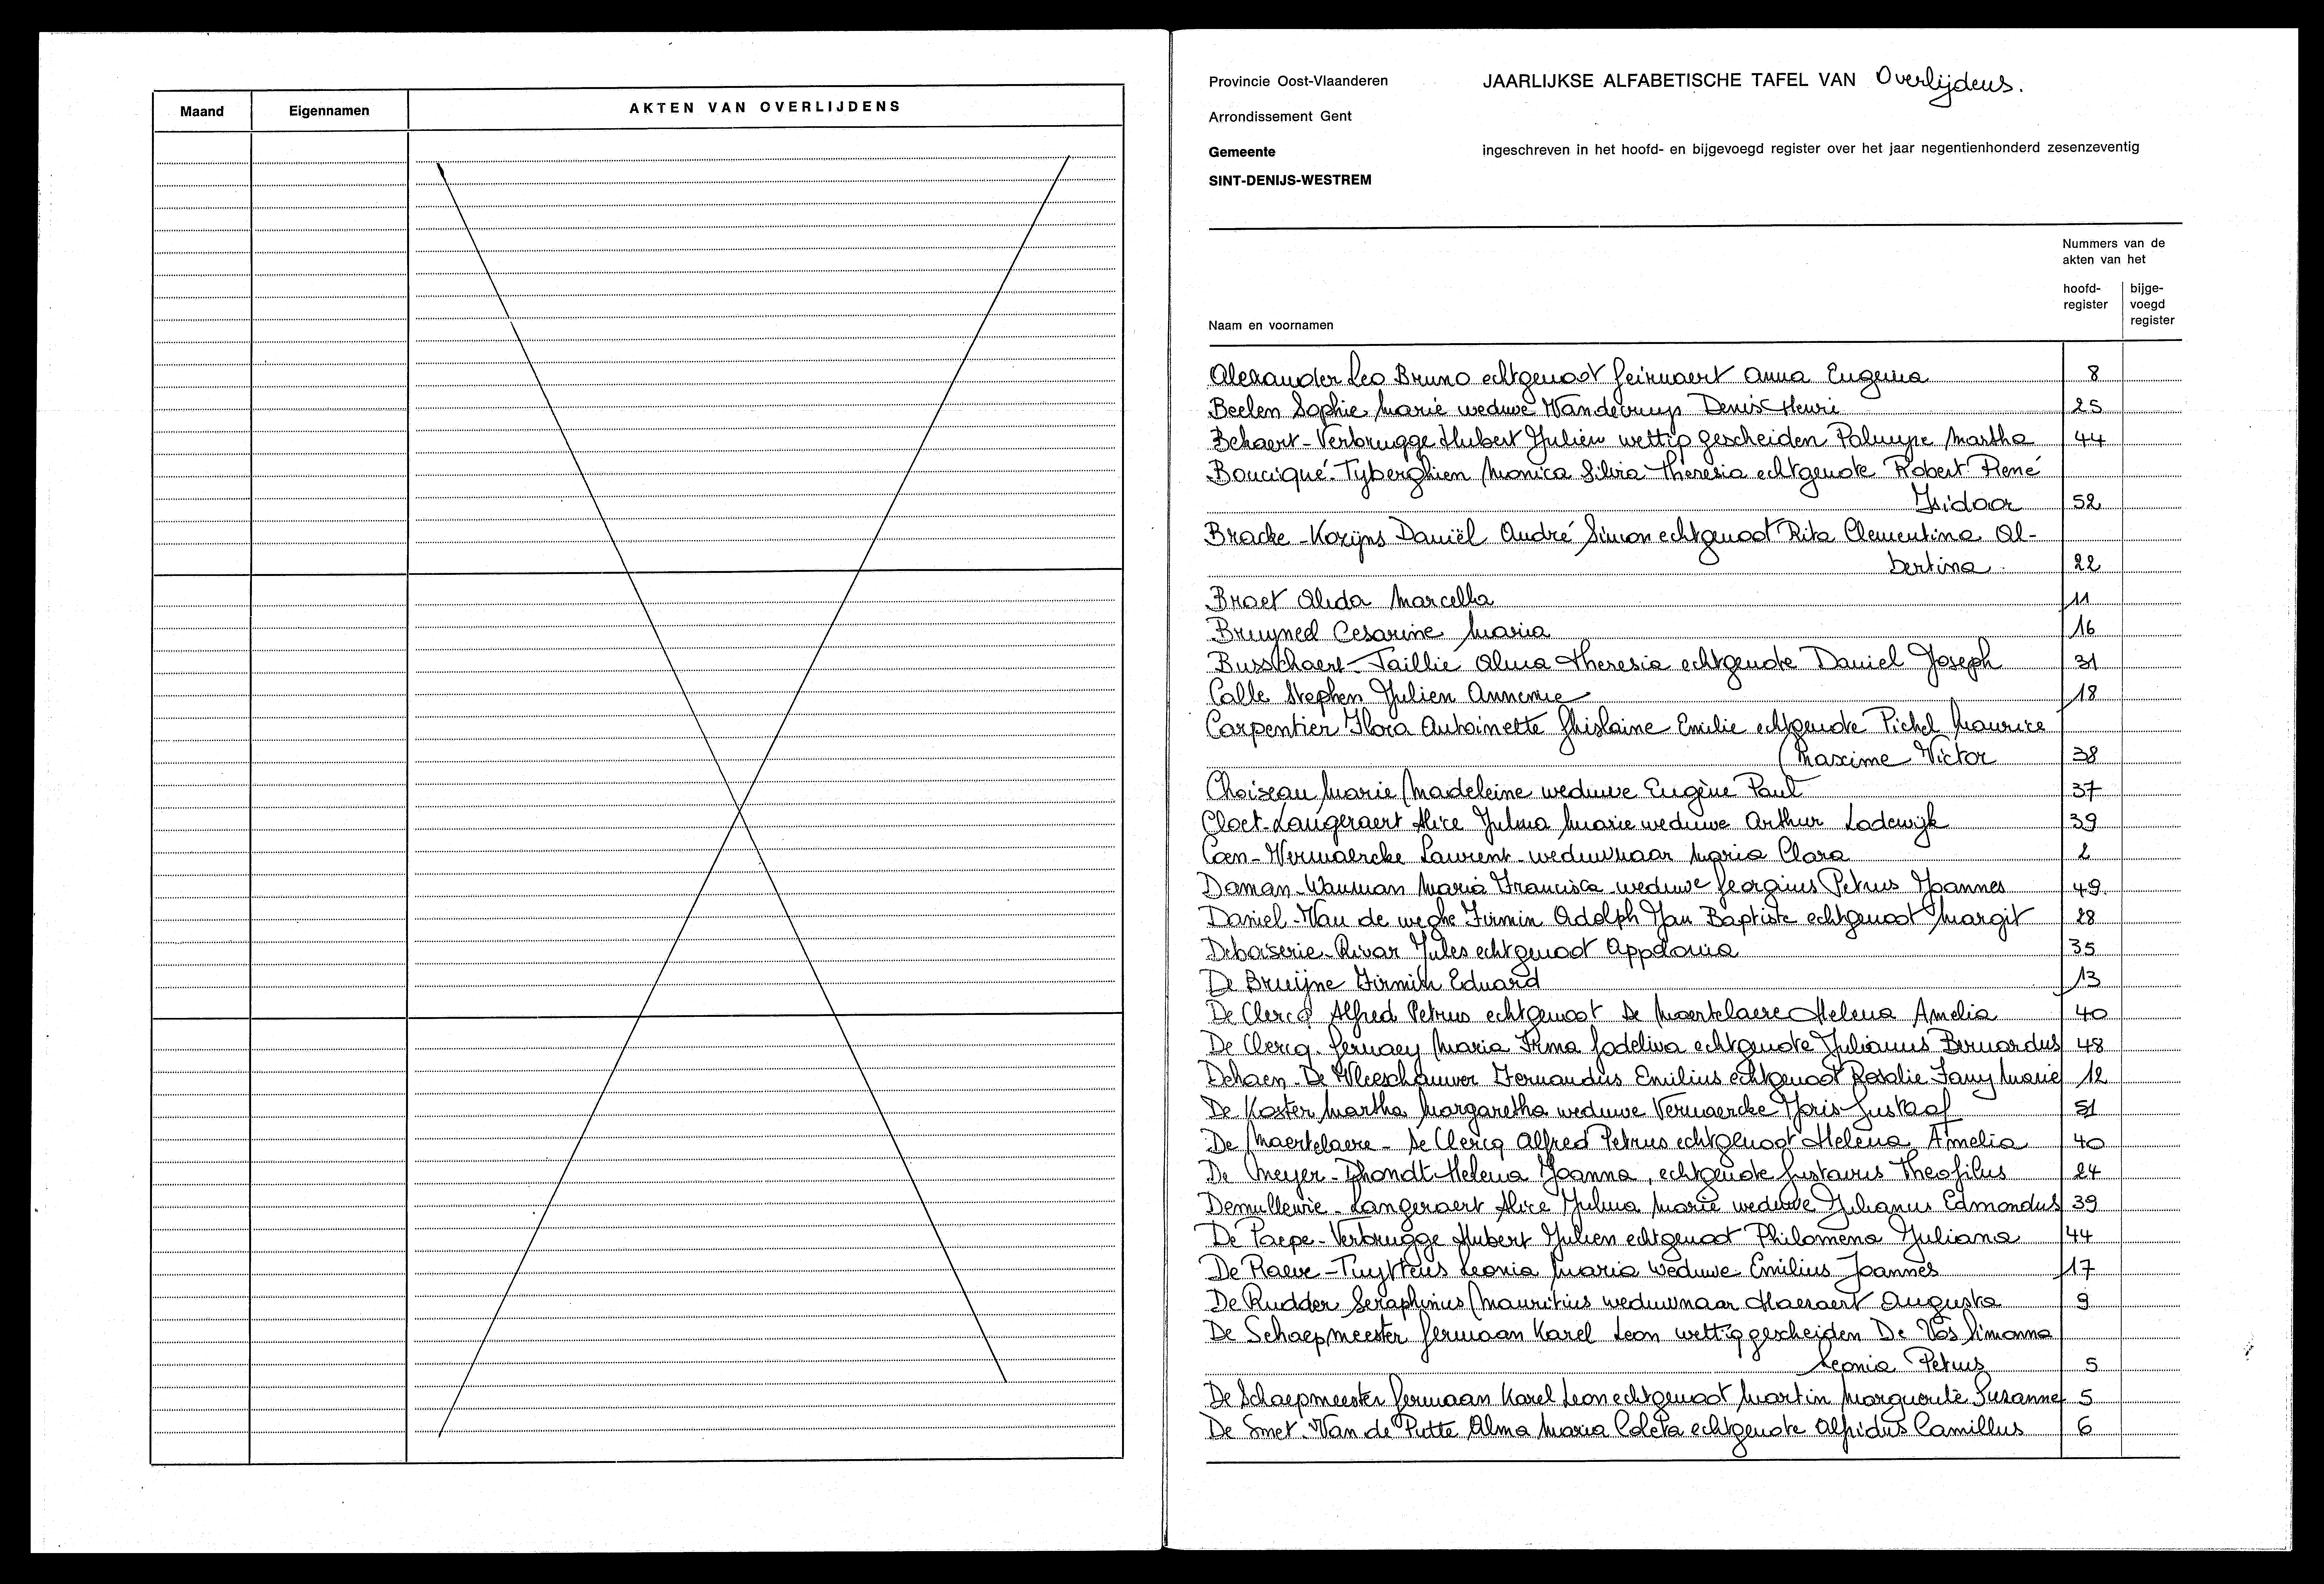 Maand Eigennamen AKTEN VAN OVERLIJDENS
Provincie Oost-Vlaanderen JAARLIJKSE ALFABETISCHE TAFEL VAN Overlijdens.
Arrondissement Gent
Gemeente ingeschreven in het hoofd- en bijgevoegd register over het jaar negentienhonderd zesenzeventig
SINT-DENIJS-WESTREM
Nummers van de
akten van het
hoofd- bijge-
register voegd
register
Naam en voornamen
Alexander Leo Bruno echtgenoot Geirnaert Anna Eugenia 8
Beelen Sophie Marie weduwe Vandecruys Denis Henri 25
Bekaert-Verbrugge Hubert Julien wettig gescheiden Palmyre Martha 44
Bouciqué-Tyberghien Monica Silvia Theresia echtgenote Robert René
Isidoor 52
Bracke-Korijns Daniël André Simon echtgenoot Rita Clementina Al-
bertina 22
Braet Alida Marcella 11
Bruyneel Cesarine Maria 16
Busschaert-Taillie Alma Theresia echtgenote Daniel Joseph 31
Calle Stephen Julien Annemie 18
Carpentier Flora Antoinette Ghislaine Emilie echtgenote Pichel Maurice
Maxime Victor 38
Choiseau Marie Madeleine weduwe Eugène Paul 37
Cloet-Langeraert Alice Julma Marie weduwe Arthur Lodewijk 39
Coen-Vermaercke Laurent weduwnaar Maria Clara 2
Daman-Wauman Maria Francisca weduwe Georgius Petrus Joannes 49
Daniel-Van de weghe Firmin Adolph Jan Baptiste echtgenoot Margit 28
Deboiserie-Rivar Jules echtgenoot Appolonia 35
De Bruijne Firmin Eduard 13
De Clercq Alfred Petrus echtgenoot De Maertelaere Helena Amelia 40
De Clercq-Gernaey Maria Irma Godeliva echtgenote Julianus Bernardus 48
Dehaen-De Vleeschauwer Fernandus Emilius echtgenoot Rosalie Fany Marie 12
De Koster Martha Margaretha weduwe Vermaercke Joris Gustaaf 51
De Maertelaere-De Clercq Alfred Petrus echtgenoot Helena Amelia 40
De Meyer-Dhondt Helena Joanna, echtgenote Gustavus Theofilus 24
Demullewie-Langeraert Alice Julma Marie weduwe Julianus Edmondus 39
De Paepe-Verbrugge Hubert Julien echtgenoot Philomena Juliana 44
De Raeve-Tuyttens Leonia Maria weduwe Emilius Joannes 17
De Rudder Seraphinus Mauritius weduwnaar Haeraert Augusta 9
De Schaepmeester Germaan Karel Leon wettig gescheiden De Vos Simonna
Leonia Petrus 5
De Schaepmeester Germaan Karel Leon echtgenoot Martin Marguerite Susanne 5
De Smet-Van de Putte Alma Maria Coleta echtgenote Alpidus Camillus 6